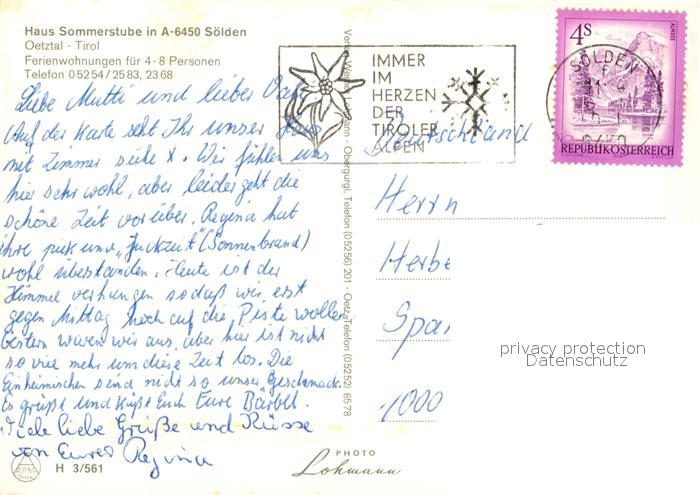 Haus Sommerstube in A-6450 Sölden
Oetztal - Tirol
Ferienwohnungen für 4-8 Personen
Telefon 0 52 54 / 25 83, 23 68
Liebe Mutti und lieber
Auf der Karte seht Ihr unser Haus
mit Zimmer siehe X. Wir fühlen uns
hier sehr wohl, aber leider geht die
schöne Zeit vorüber. Regina hat
ihre pick und „Juckzeit" (Sonnenbrand)
wohl überstanden. Heute ist der
Himmel verhangen sodaß wir erst
gegen Mittag hoch auf die Piste wollen
Gestern waren wir aus, aber hier ist nicht
so viel mehr um diese Zeit los. Die
Einheimischen sind nicht so unser Geschmack.
Es grüßt und küßt Euch Eure Bärbel.
Viele liebe Grüße und Küsse
von Eurer Regina
H 3/561
PHOTO
Lohmann
Lohmann - Obergurgl, Telefon (05256) 201 - Oetz, Telefon (05252) 6578
IMMER
IM
HERZEN
DER
TIROLER
ALPEN
SÖLDEN
6450
4S
ALMSEE
REPUBLIK ÖSTERREICH
Deutschland
Herrn
Herbe
Spa
1000
privacy protection
Datenschutz